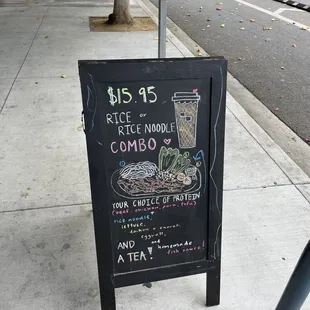 $15.95
RICE or
RICE NOODLE
COMBO
YOUR CHOICE OF PROTEIN
(beef, chicken, pork, tofu)
rice noodle,
lettuce,
eggroll,
AND and homemade
fish sauce!
A TEA!